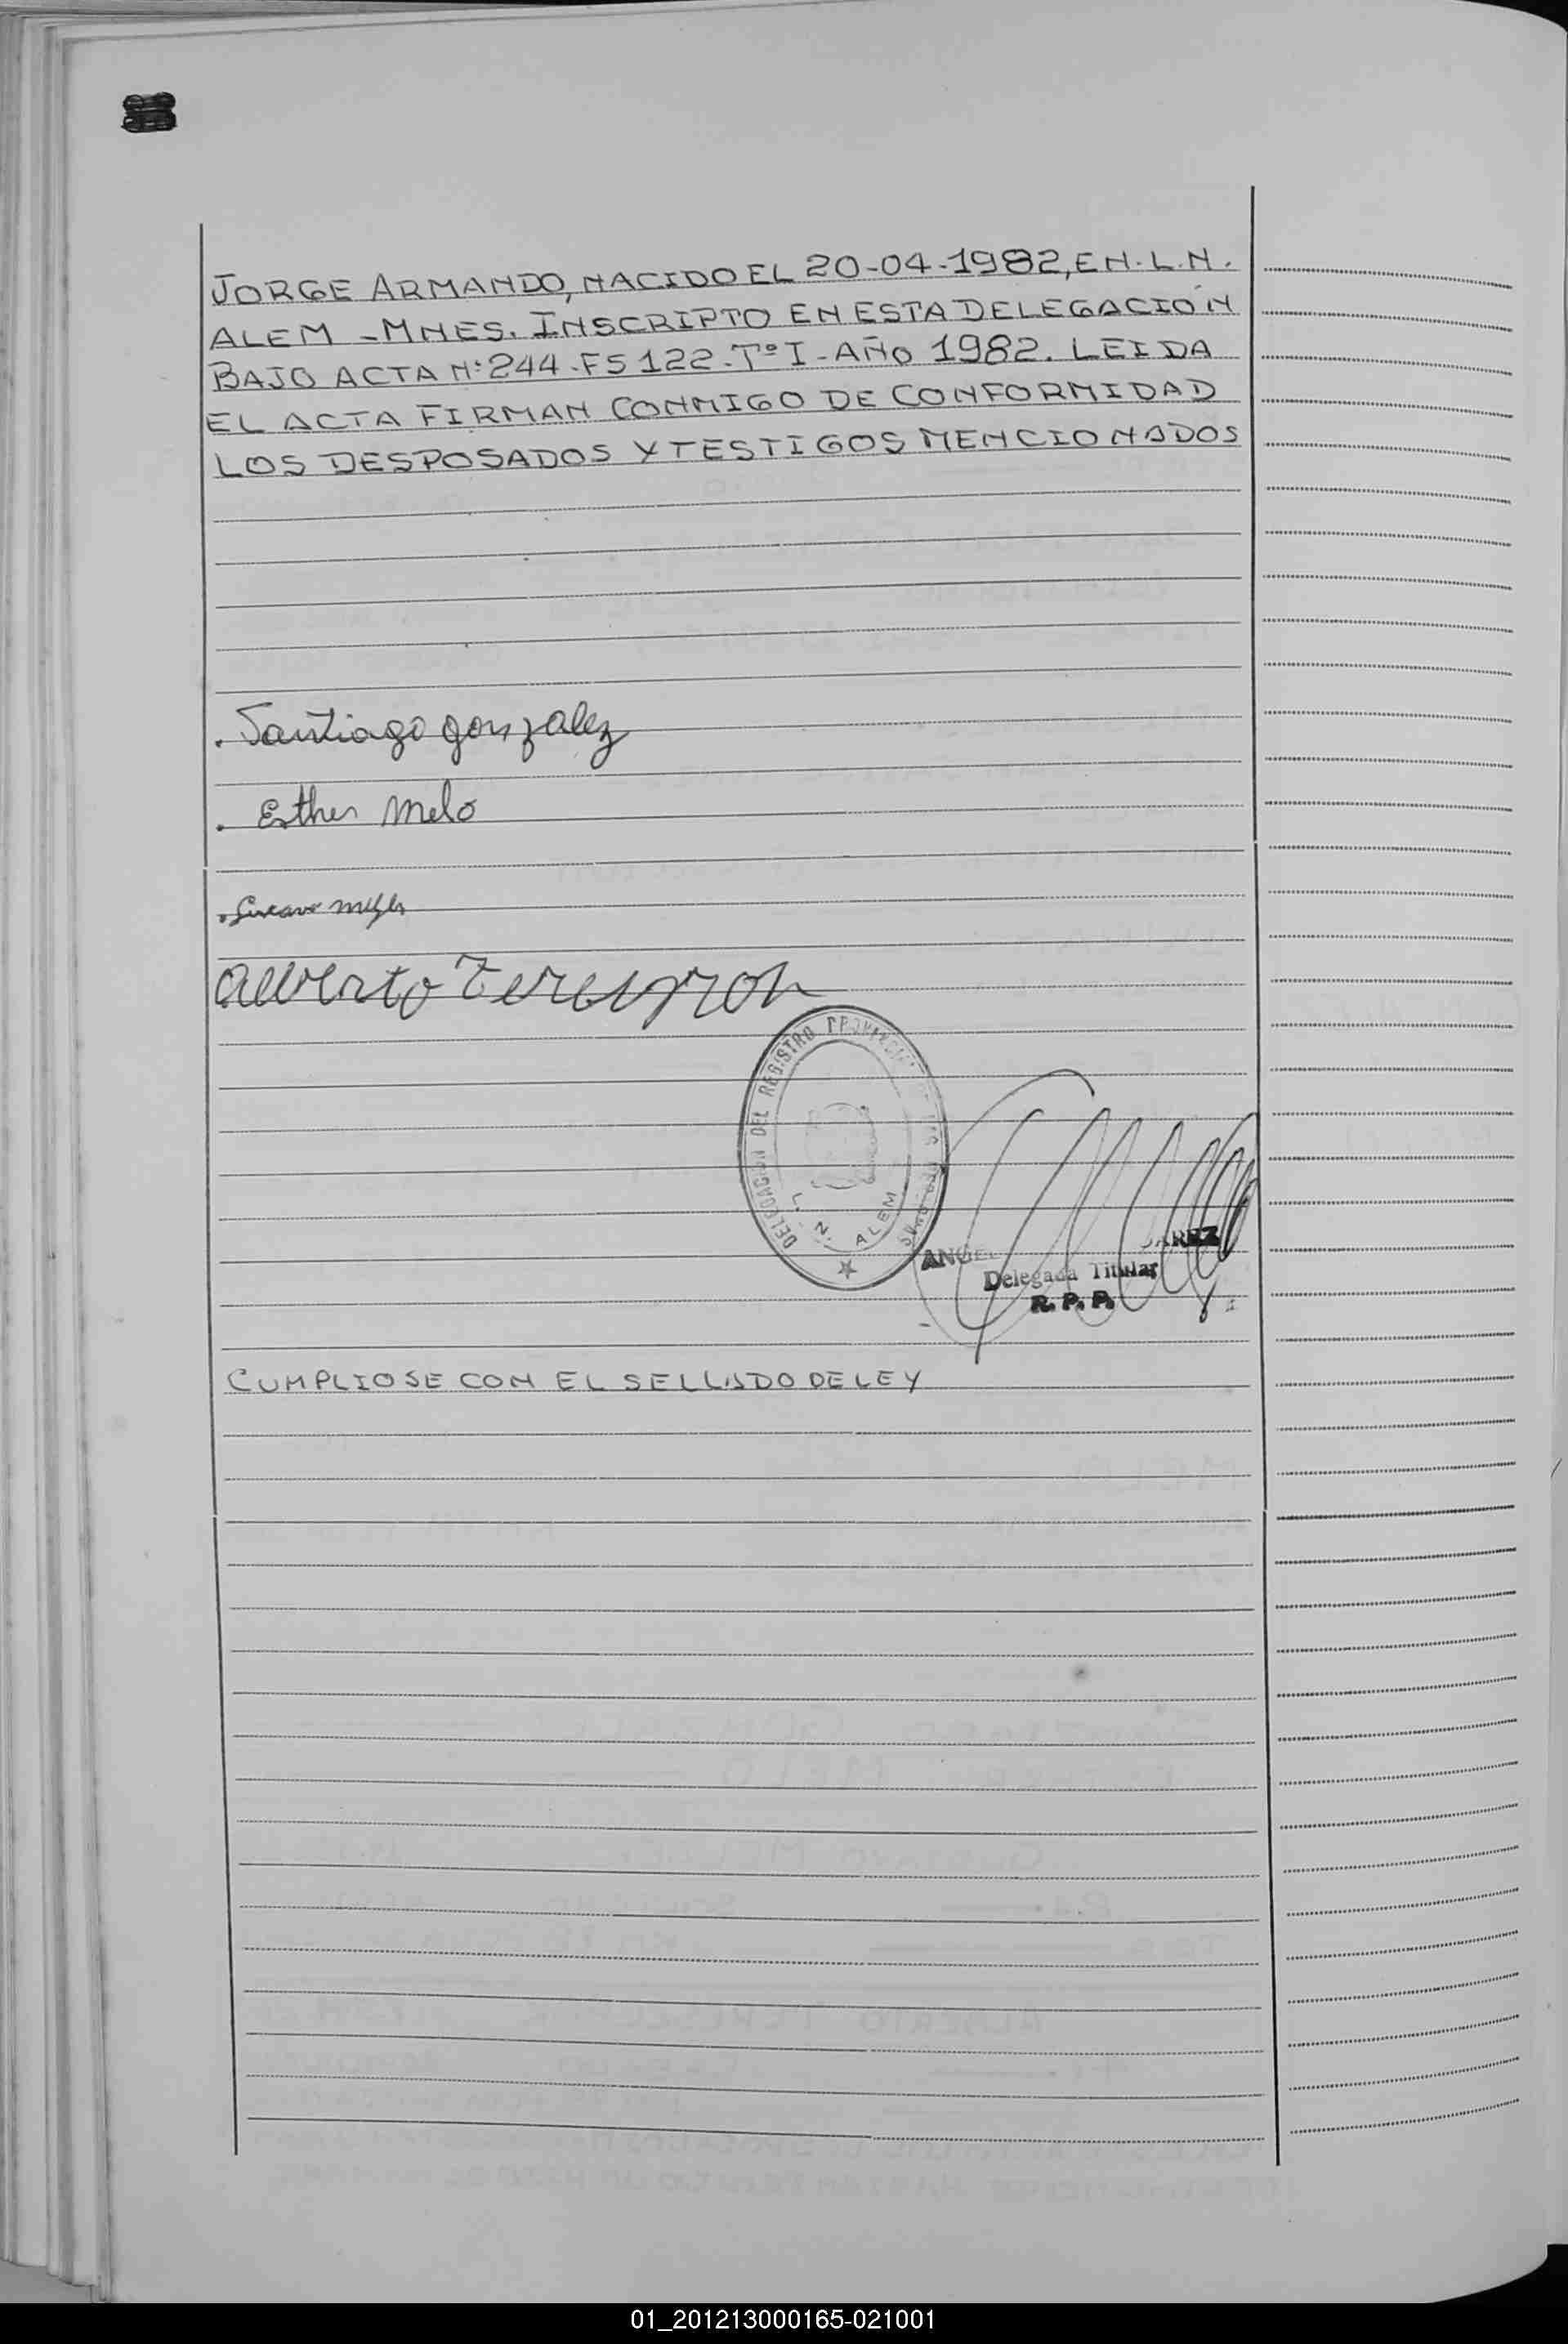 JORGE ARMANDO, NACIDO EL 20-04-1982, EN. L.N.
ALEM - MNES. INSCRIPTO EN ESTA DELEGACIÓN
BAJO ACTA Nº 244 - FS 122 - Tº I - AÑO 1982. LEIDA
EL ACTA FIRMAN CONMIGO DE CONFORMIDAD
LOS DESPOSADOS Y TESTIGOS MENCIONADOS
. Santiago gonzalez
. Esther Melo
Alberto
DELEGACION DEL REGISTRO PROVINCIAL DE LAS PERSONAS
L. N. ALEM
ANGEL
Delegada Titular
R. P. P.
CUMPLIOSE CON EL SELLADO DE LEY
01_201213000165-021001